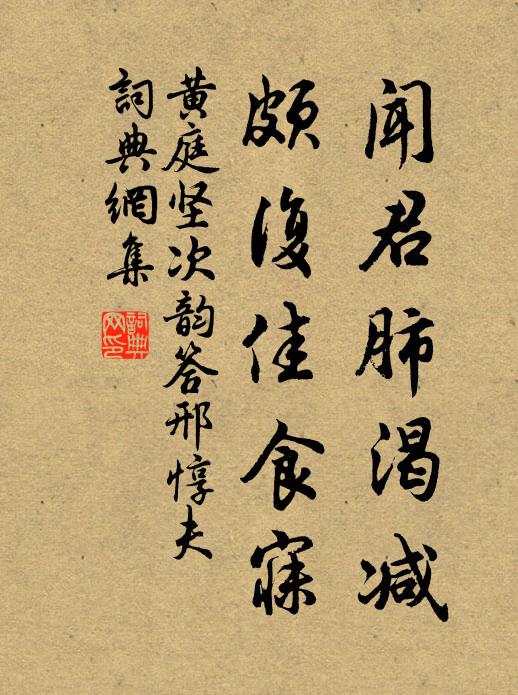 闻君肺渴减
颇復佳食寐
黄庭坚次韵答邢惇夫
詞典網集
詞典网印